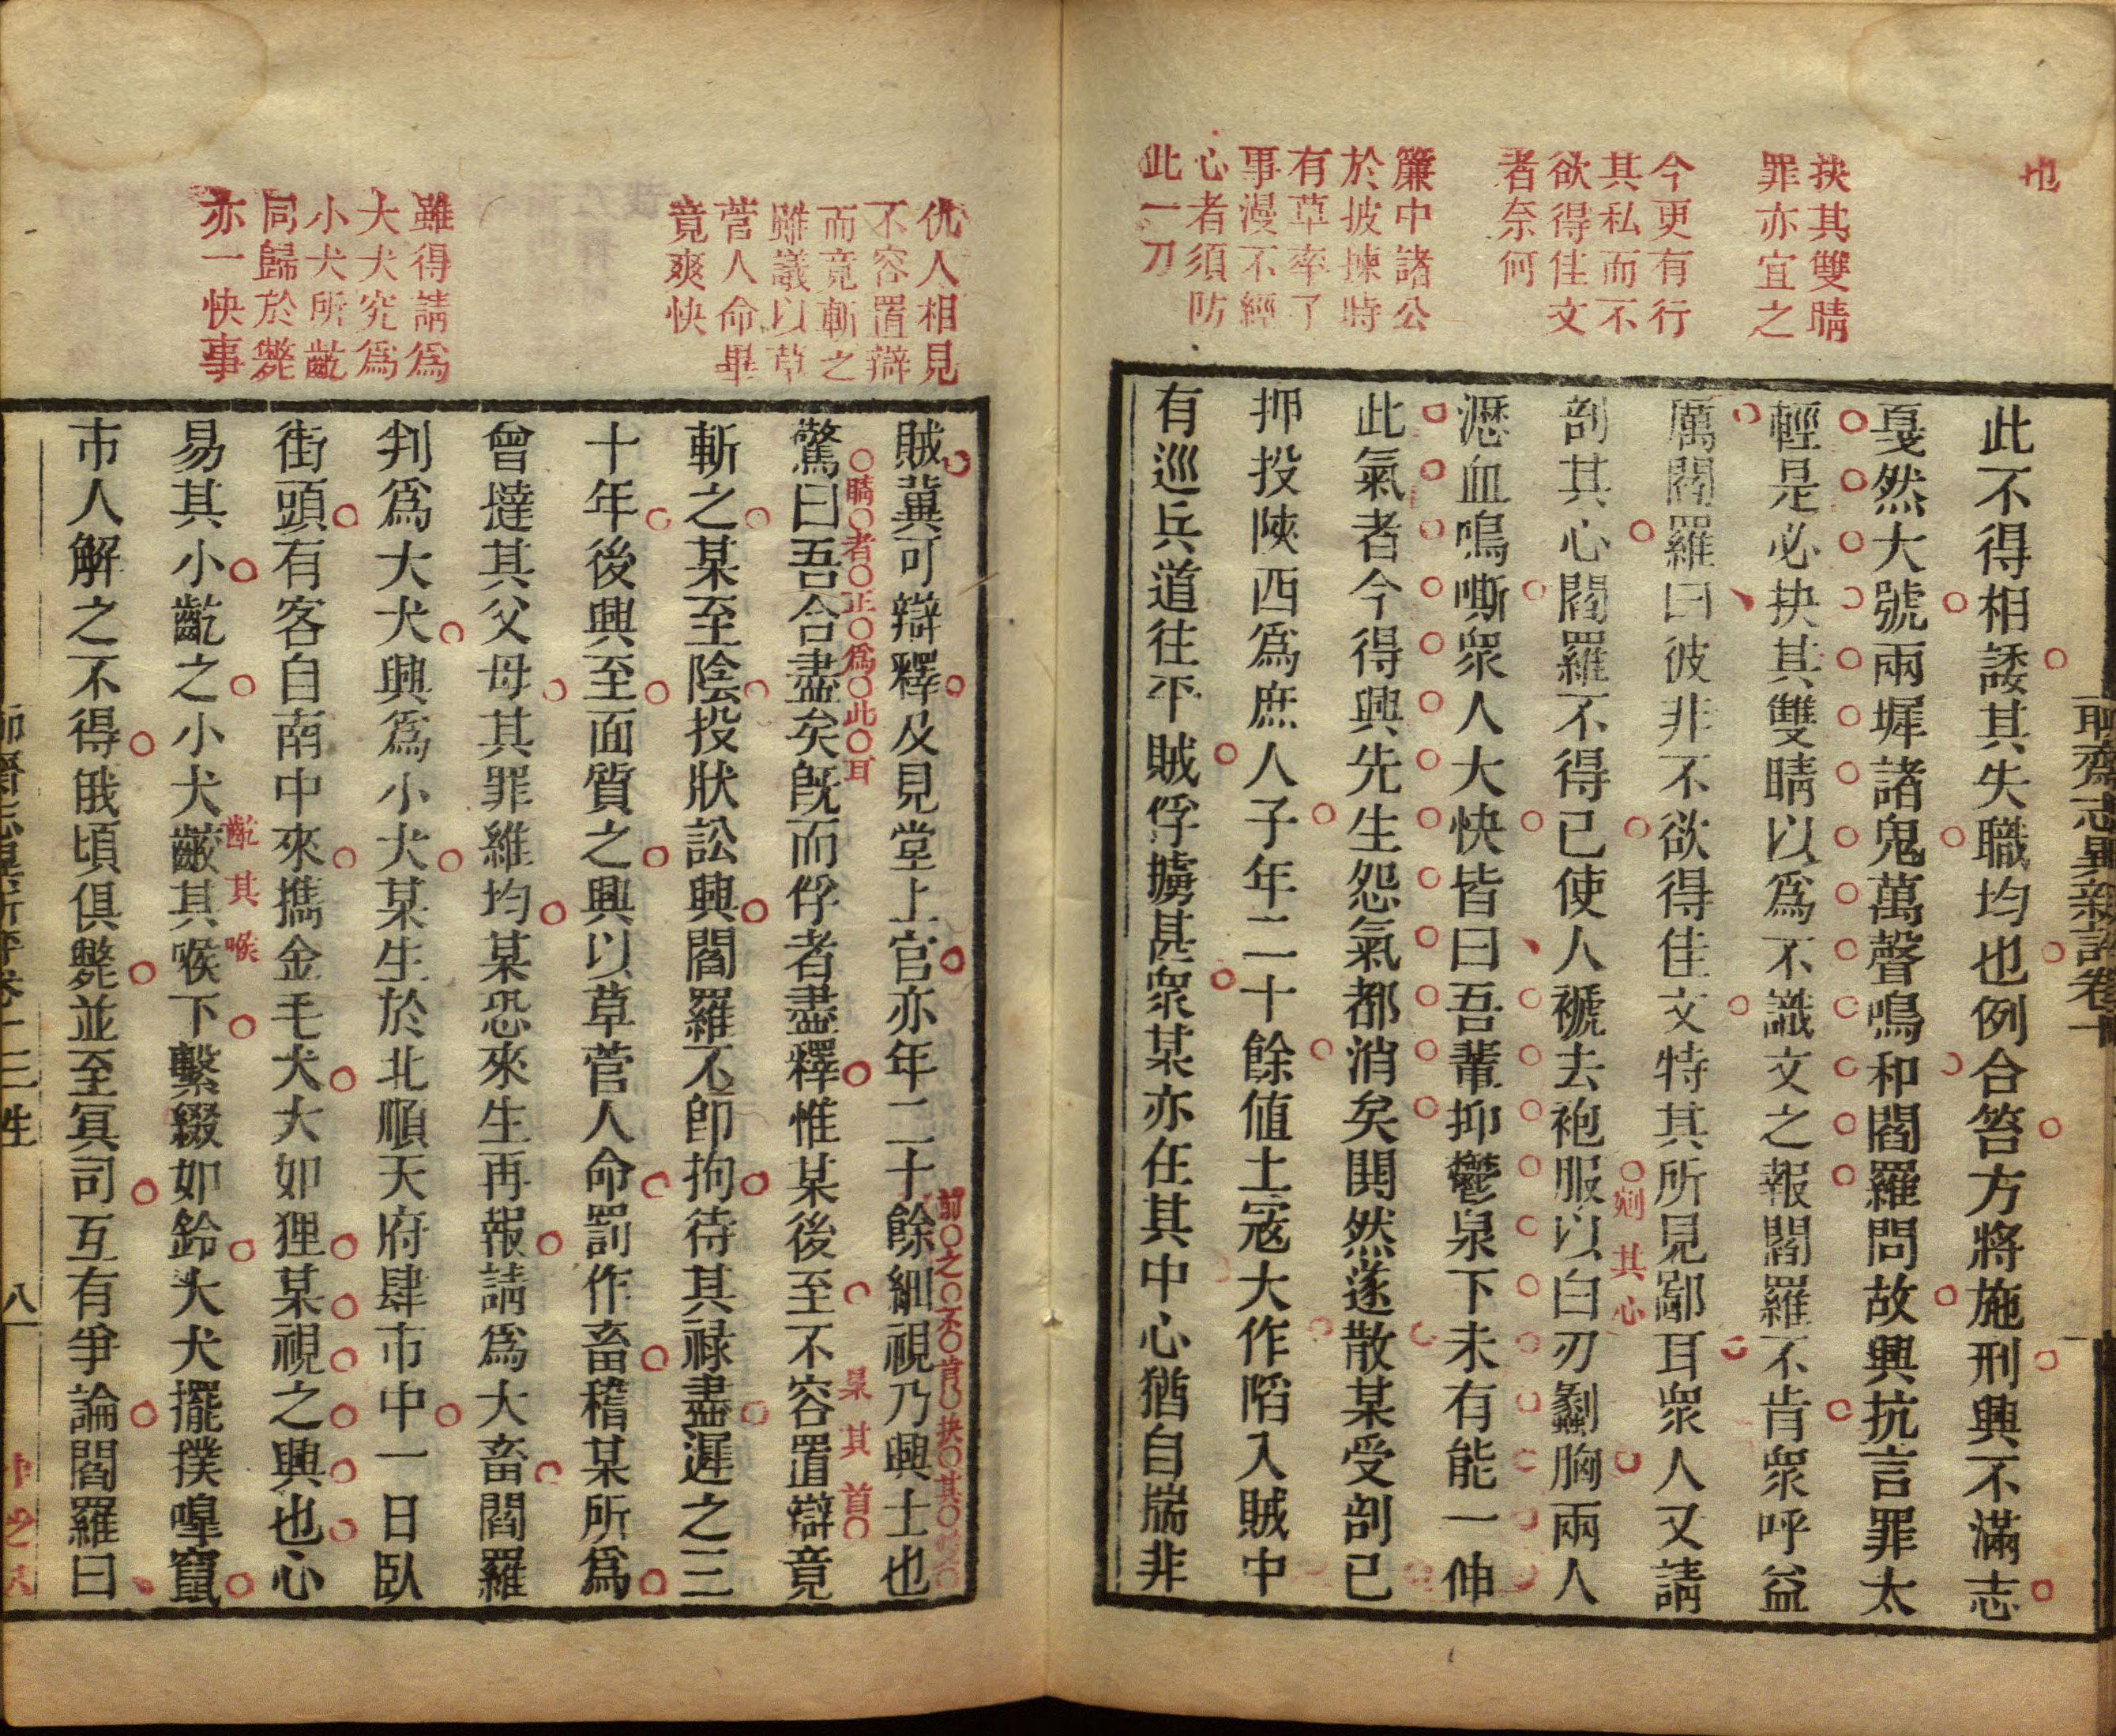 也
抉其雙睛
罪亦宜之
今更有行
其私而不
欲得佳文
者奈何
簾中諸公
於披揀時
有草率了
事漫不經
心者須防
此一刀
聊齋志異新評卷十
此不得相諉其失職均也例合笞方將施刑興不滿志
戛然大號兩墀諸鬼萬聲鳴和閻羅問故興抗言罪太
輕是必抉其雙睛以爲不識文之報閻羅不肯眾呼益
厲閻羅曰彼非不欲得佳文特其所見鄙耳眾人又請
剖其心閻羅不得已使人褫去袍服以白刃劙胸兩人
剜其心
瀝血鳴嘶眾人大快皆曰吾輩抑鬱泉下未有能一伸
此氣者今得興先生怨氣都消矣鬨然遂散某受剖已
押投陝西爲庶人子年二十餘值土寇大作陷入賊中
有巡兵道往平賊俘擄甚眾某亦在其中心猶自揣非
仇人相見
不容置辯
而竟斬之
雖議以草
菅人命畢
竟爽快
雖得請爲
大犬究爲
小犬所齩
同歸於斃
亦一快事
賊冀可辯釋及見堂上官亦年二十餘細視乃興士也
前之不肯抉其
驚曰吾合盡矣旣而俘者盡釋惟某後至不容置辯竟
瞞者正爲此耳
梟其首
斬之某至陰投狀訟興閻羅不卽拘待其祿盡遲之三
十年後興至面質之興以草菅人命罰作畜稽某所爲
曾撻其父母其罪維均某恐來生再報請爲大畜閻羅
判爲大犬興爲小犬某生於北順天府肆市中一日臥
街頭有客自南中來攜金毛犬大如狸某視之興也心
易其小齕之小犬齩其喉下繫綴如鈴大犬擺撲嗥竄
齕其喉
市人解之不得俄頃俱斃並至冥司互有爭論閻羅曰
三生
八